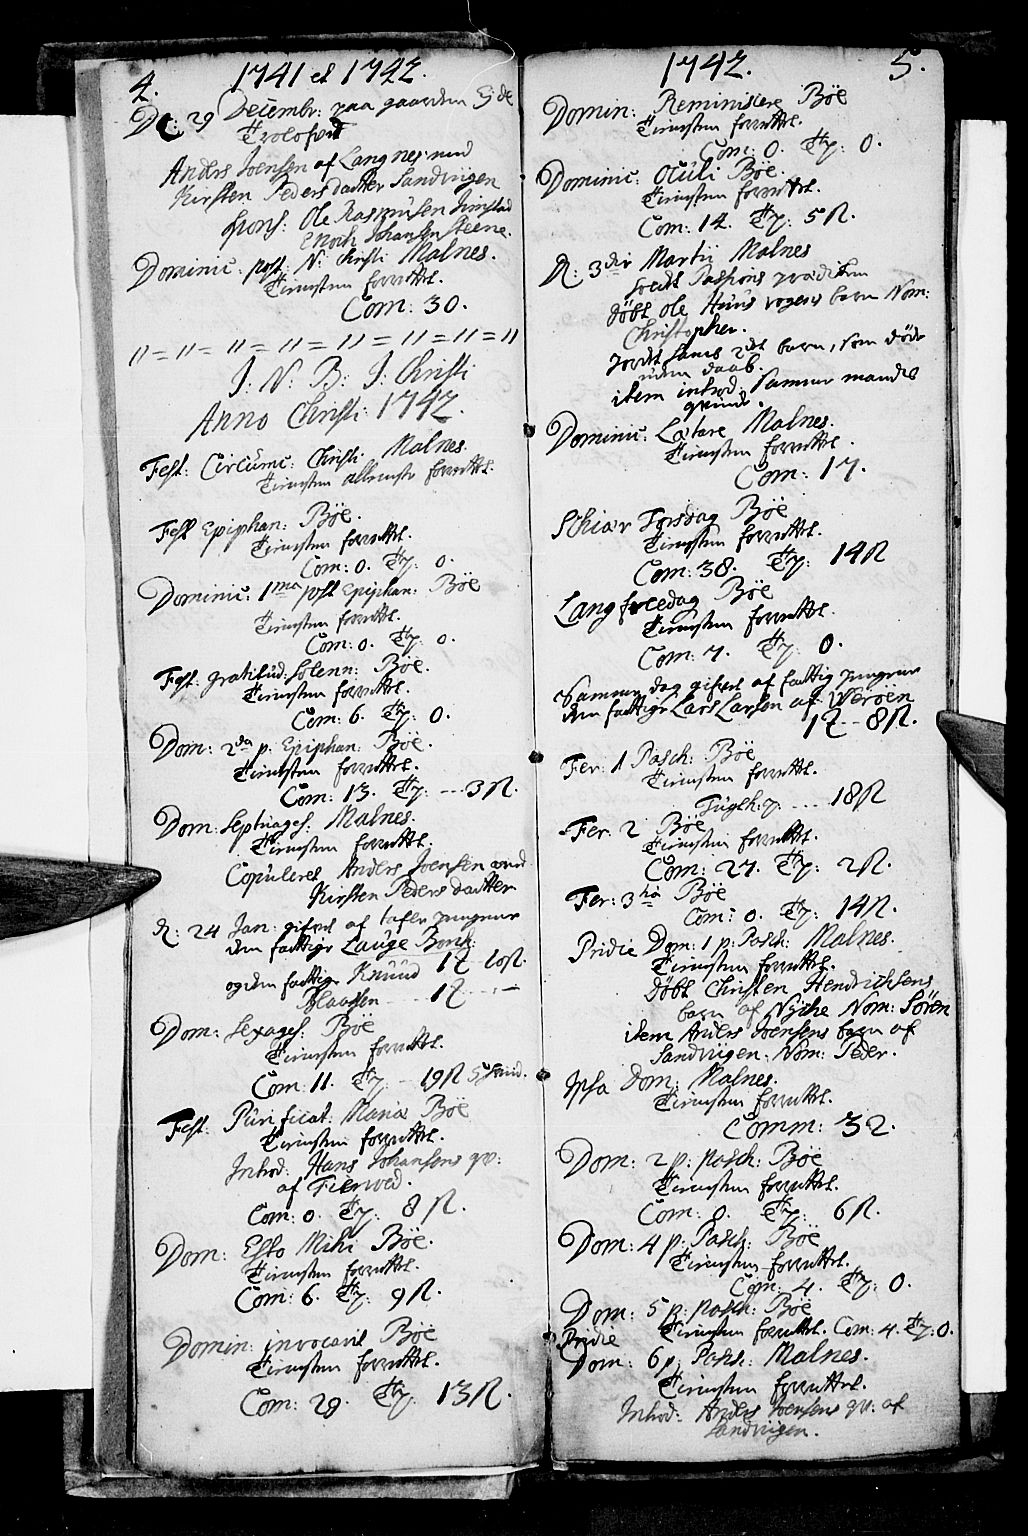 4. 1741 et 1742.
D: 29 Decembr: paa gaarden Side
Trolofved
Anders Joensen af Langnes med
Kirsten Peders datter Sandvigen
spons: Ole Rasmusen Jimstad
Enoch Johansen Steene.
Dominic: post N: Christi Malnes.
Tienesten forrettet.
Com: 30.
J. N. B: J. Christi
Anno Christi 1742.
Fest: Circumc: Christi Malnes.
Tienesten allene forrettet.
Fest Epiphan: Bøe.
Tienesten forrettet.
Com: 0. Ty: 0.
Dominic: 1ma post Epiphan: Bøe
Tienesten forrettet.
Com: 0. Ty: 0.
Fest. gratitud. solenn: Bøe.
Tienesten forrettet.
Com: 6. Ty: 0.
Dom: 2da p. Epiphan: Bøe.
Tienesten forrettet.
Com: 13. Ty: --- 3 ß.
Dom: Septuages: Malnes.
Tienesten forrettet.
Copuleret Anders Joensen med
Kirsten Peders datter
D: 24 Jan: gifvet af tafle pengene
den fattige Lauge Bonk:
og den fattige Knüüd
Klaassen --- 1
Dom: Sexages: Bøe
Tienesten forrettet.
Com: 11. Ty: -- 19 ß
Fest: Purificat: Mariæ Bøe
Tienesten forrettet.
Introd: Hans Johansens qv:
af Fierved.
Com: 0. Ty: 8 ß.
Dom: Esto Mihi Bøe.
Tienesten forrettet.
Com: 6. Ty: 9 ß.
Domin: invocavit Bøe
Tienesten forrettet.
Com: 29. Ty: 13 ß.
1742. 5.
Domin: Reminiscere Bøe
Tienesten forrettet.
Com: 0. Ty: 0.
Dominic: Oculi Bøe.
Tienesten forrettet.
Com: 14. Ty: 5 ß.
D: 3die Martii Malnes
holdt Passions prædiken
døbt Ole barn Nom:
Christopher.
Jordet hans 2det barn, som døde
uden daab.
item introd. samme mands
qvinde.
Dominic: Lætare Malnes.
Tienesten forrettet.
Com: 17.
Skiær Torsdag Bøe
Tienesten forrettet.
Com: 38. Ty: 14 ß
Langfredag Bøe
Tienesten forrettet.
Com: 7. Ty: 0.
Samme dag gifvet af fattig pengene
den fattige Lars Larsen af Werøen
1 -- 8 ß.
Fer: 1 Pasch: Bøe
Tienesten forrettet.
--- 18 ß
Fer: 2 Bøe
Tienesten forrettet.
Com: 27. Ty: 2 ß.
Fer: 3tia Bøe
Com: 0. Ty: 14 ß.
Pridie Dom: 1 p: Pasch: Malnes.
Tienesten forrettet.
Døbt Christen Hendrichsens
barn af Nyche Nom: Søren
item Anders Joensens barn af
Sandvigen. Nom: Peder.
Ipsa Dom: Malnes.
Tienesten forrettet.
Comm: 32.
Dom: 2 p: pasch: Bøe
Tienesten forrettet.
Com: 0. Ty: 6 ß.
Dom: 4 p: Pasch: Bøe
Tienesten forrettet.
Com: 4. Ty: 0.
Dom: 5 p: pasch: Bøe
Tienesten forrettet. Com: 4. Ty: 0.
Pridie
Dom: 6 p. Pasc: Malnes.
Tienesten forrettet.
Introd: Anders Joensens qv: af
Sandvigen.